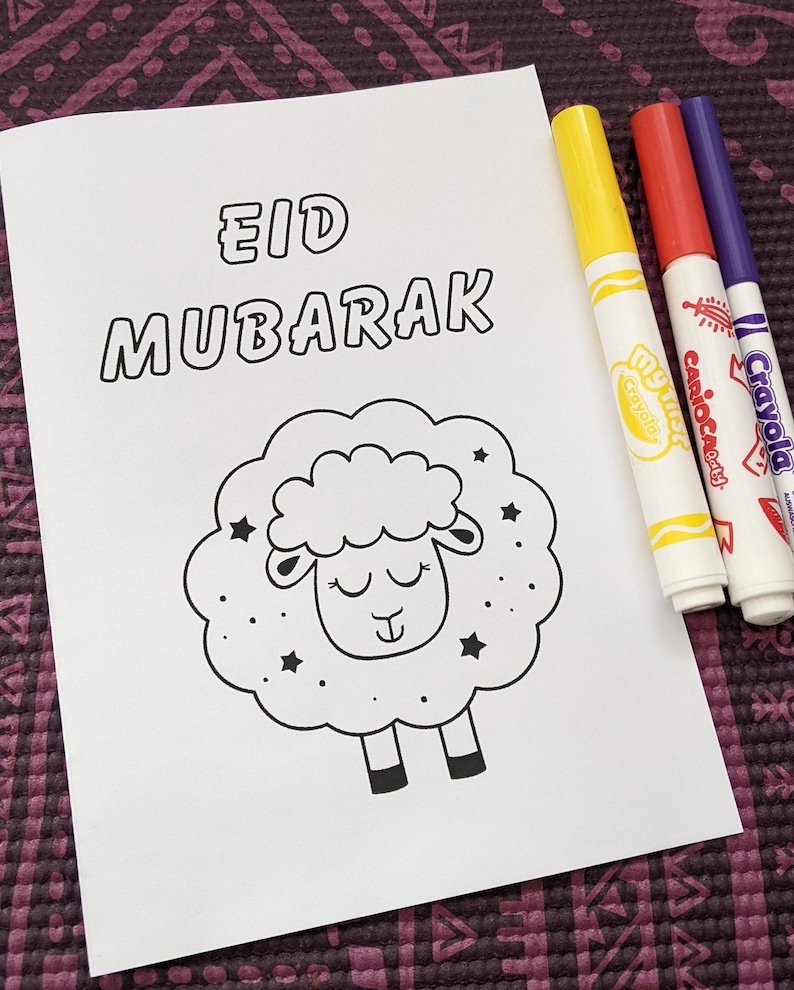 EID
MUBARAK
my first
Crayola
CARIOCA
baby
Crayola